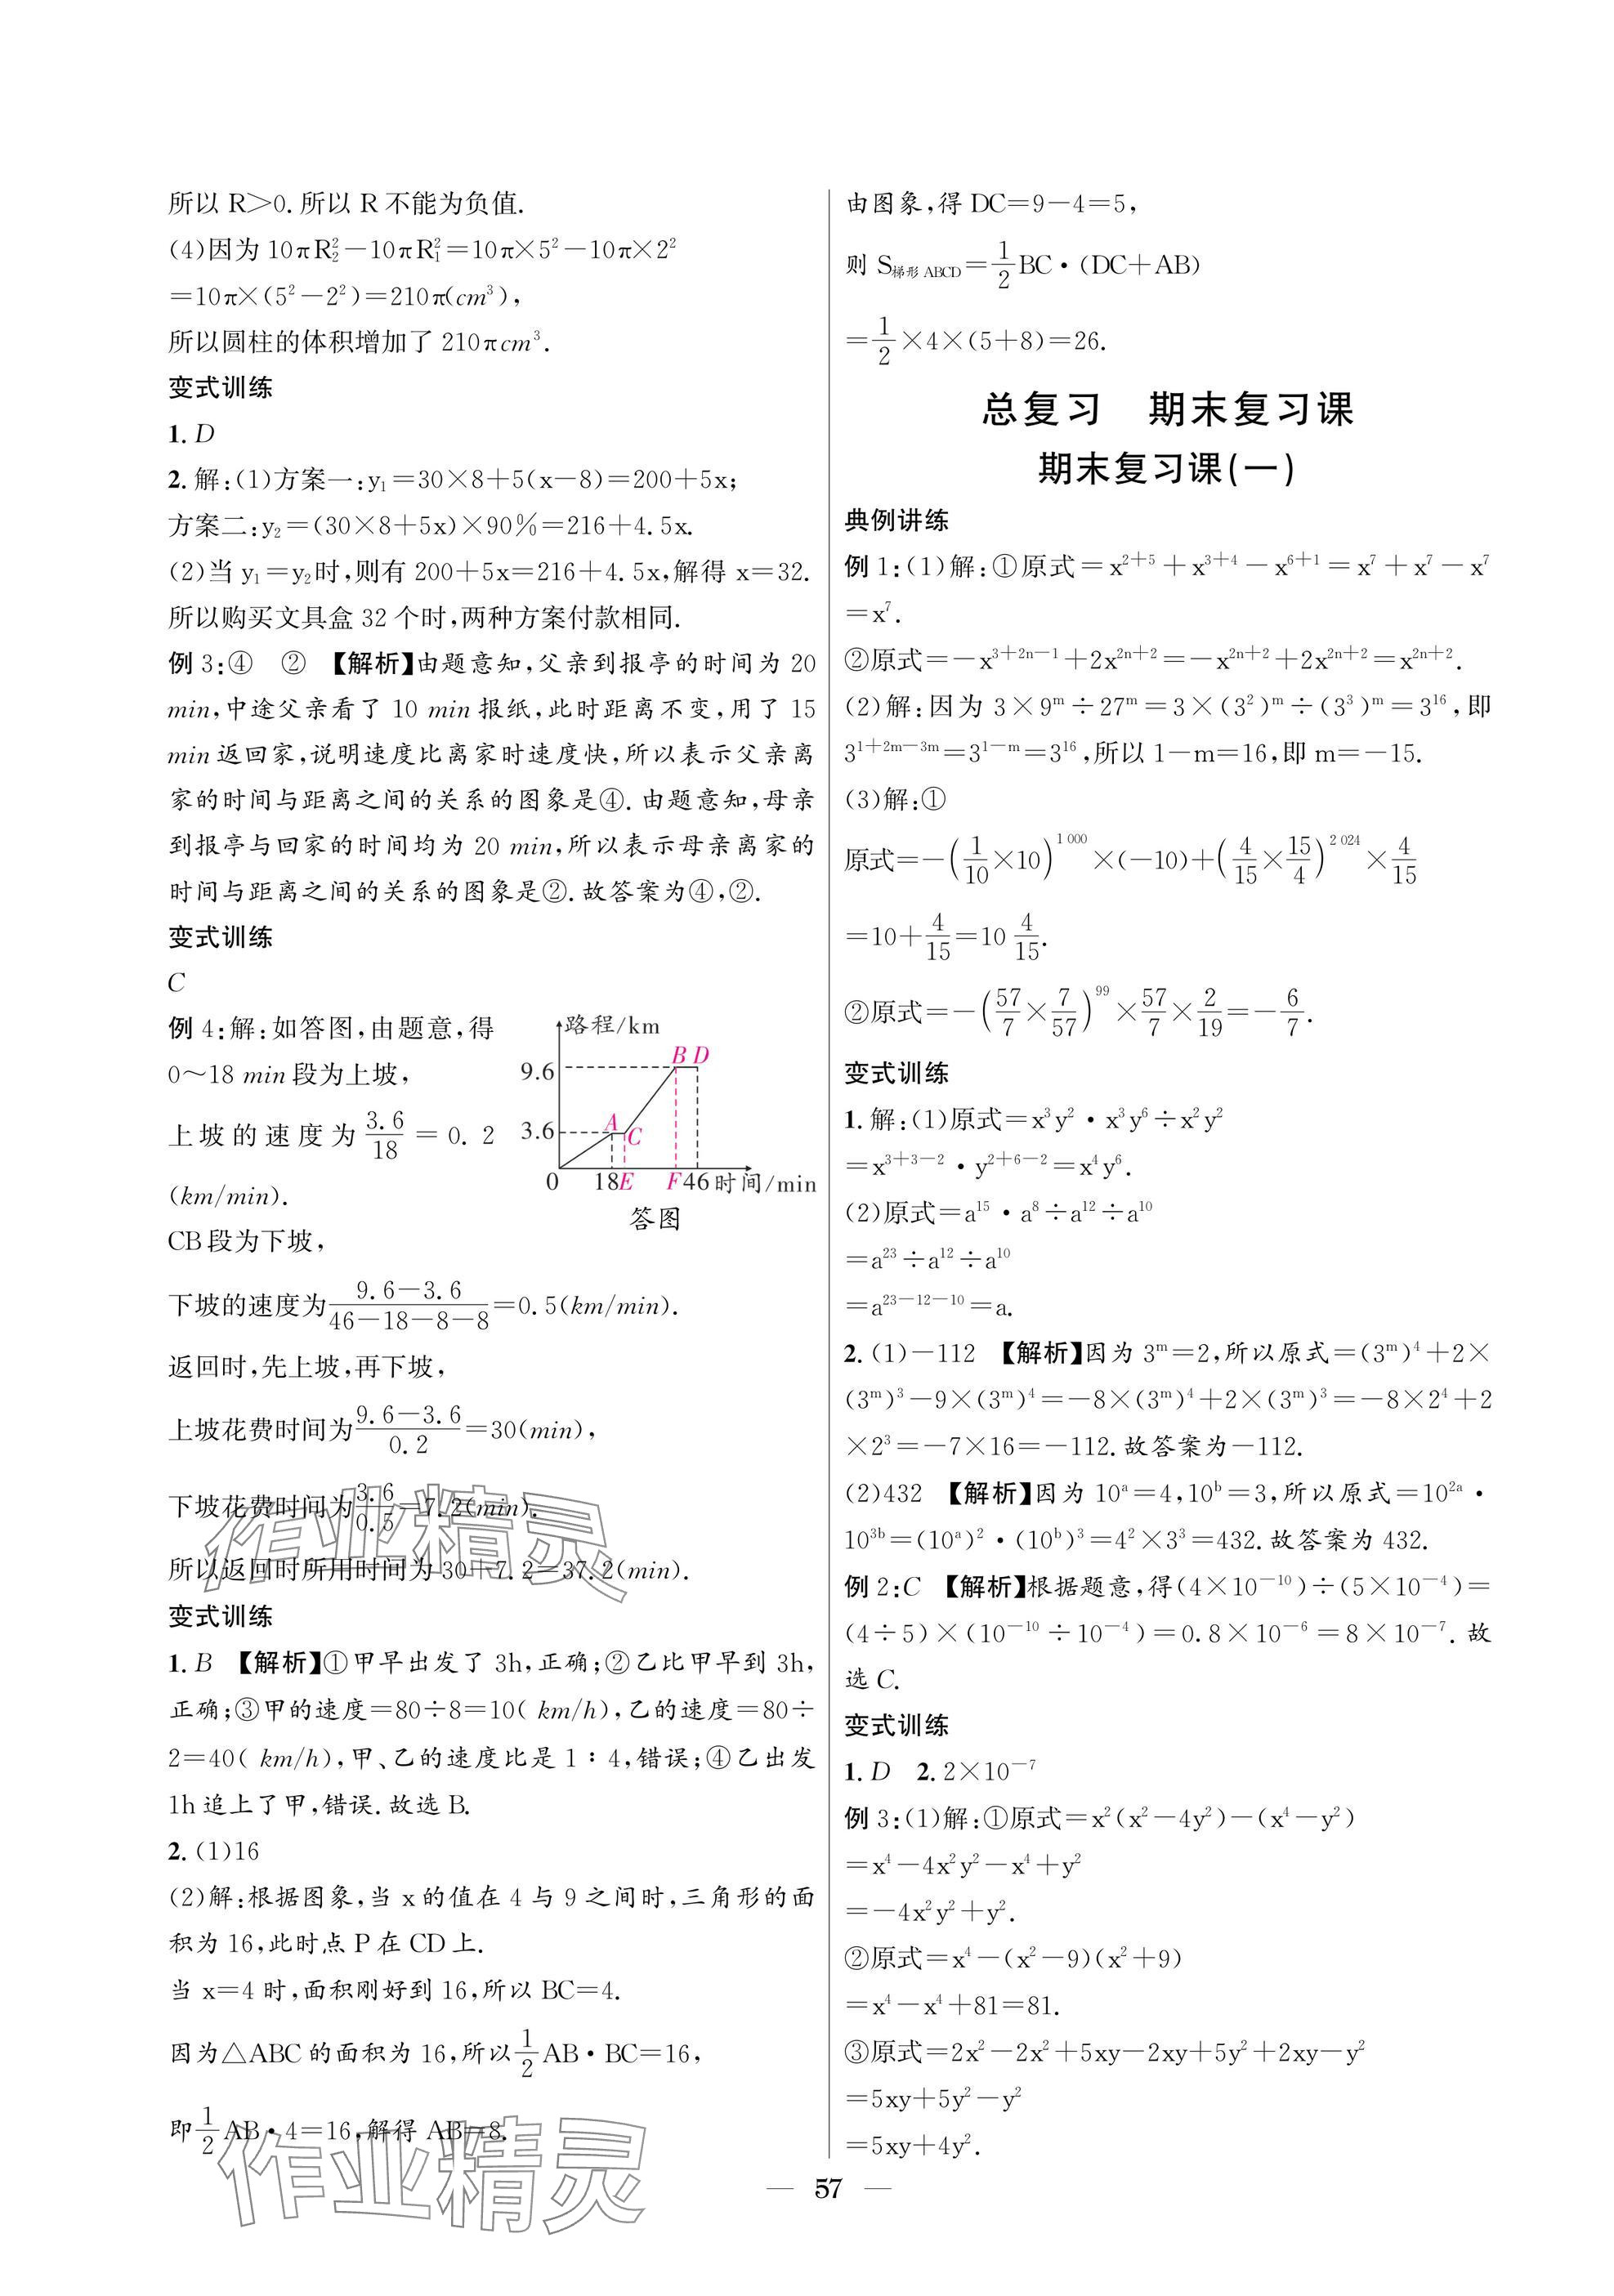 所以 R>0.所以 R 不能为负值.
(4)因为 10πR₂²−10πR₁²=10π×5²−10π×2²
=10π×(5²−2²)=210π(cm³),
所以圆柱的体积增加了 210πcm³.
变式训练
1. D
2. 解:(1)方案一:y₁=30×8+5(x−8)=200+5x;
方案二:y₂=(30×8+5x)×90%=216+4.5x.
(2)当 y₁=y₂时,则有 200+5x=216+4.5x,解得 x=32.
所以购买文具盒 32 个时,两种方案付款相同.
例 3:④ ② 【解析】由题意知,父亲到报亭的时间为 20
min,中途父亲看了 10 min 报纸,此时距离不变,用了 15
min 返回家,说明速度比离家时速度快,所以表示父亲离
家的时间与距离之间的关系的图象是④.由题意知,母亲
到报亭与回家的时间均为 20 min,所以表示母亲离家的
时间与距离之间的关系的图象是②.故答案为④,②.
变式训练
C
例 4:解:如答图,由题意,得
0~18 min 段为上坡,
上坡的速度为 3.6/18 = 0.2
(km/min).
路程/km
B D
9.6
A
3.6
C
0 18 E F 46 时间/min
答图
CB 段为下坡,
下坡的速度为 (9.6−3.6)/(46−18−8−8)=0.5(km/min).
返回时,先上坡,再下坡,
上坡花费时间为 (9.6−3.6)/0.2=30(min),
下坡花费时间为 3.6/0.5=7.2(min).
所以返回时所用时间为 30+7.2=37.2(min).
作业精灵
变式训练
1. B 【解析】①甲早出发了 3h,正确;②乙比甲早到 3h,
正确;③甲的速度=80÷8=10( km/h),乙的速度=80÷
2=40( km/h),甲、乙的速度比是 1∶4,错误;④乙出发
1h 追上了甲,错误.故选 B.
2. (1)16
(2)解:根据图象,当 x 的值在 4 与 9 之间时,三角形的面
积为 16,此时点 P 在 CD 上.
当 x=4 时,面积刚好到 16,所以 BC=4.
因为△ABC 的面积为 16,所以 1/2 AB·BC=16,
即 1/2 AB·4=16,解得 AB=8.
作业精灵
由图象,得 DC=9−4=5,
则 S梯形ABCD=1/2 BC·(DC+AB)
=1/2×4×(5+8)=26.
总复习 期末复习课
期末复习课(一)
典例讲练
例 1:(1)解:①原式=x²⁺⁵+x³⁺⁴−x⁶⁺¹=x⁷+x⁷−x⁷
=x⁷.
②原式=−x^(3+2n−1)+2x^(2n+2)=−x^(2n+2)+2x^(2n+2)=x^(2n+2).
(2)解:因为 3×9^m÷27^m=3×(3²)^m÷(3³)^m=3¹⁶,即
3^(1+2m−3m)=3^(1−m)=3¹⁶,所以 1−m=16,即 m=−15.
(3)解:①
原式=−(1/10×10)^1 000×(−10)+(4/15×15/4)^2 024×4/15
=10+4/15=10 4/15.
②原式=−(57/7×7/57)^99×57/7×2/19=−6/7.
变式训练
1. 解:(1)原式=x³y²·x³y⁶÷x²y²
=x^(3+3−2)·y^(2+6−2)=x⁴y⁶.
(2)原式=a¹⁵·a⁸÷a¹²÷a¹⁰
=a²³÷a¹²÷a¹⁰
=a^(23−12−10)=a.
2. (1)−112 【解析】因为 3^m=2,所以原式=(3^m)⁴+2×
(3^m)³−9×(3^m)⁴=−8×(3^m)⁴+2×(3^m)³=−8×2⁴+2
×2³=−7×16=−112.故答案为−112.
(2)432 【解析】因为 10^a=4,10^b=3,所以原式=10^(2a)·
10^(3b)=(10^a)²·(10^b)³=4²×3³=432.故答案为 432.
例 2:C 【解析】根据题意,得(4×10⁻¹⁰)÷(5×10⁻⁴)=
(4÷5)×(10⁻¹⁰÷10⁻⁴)=0.8×10⁻⁶=8×10⁻⁷.故
选 C.
变式训练
1. D 2. 2×10⁻⁷
例 3:(1)解:①原式=x²(x²−4y²)−(x⁴−y²)
=x⁴−4x²y²−x⁴+y²
=−4x²y²+y².
②原式=x⁴−(x²−9)(x²+9)
=x⁴−x⁴+81=81.
③原式=2x²−2x²+5xy−2xy+5y²+2xy−y²
=5xy+5y²−y²
=5xy+4y².
— 57 —